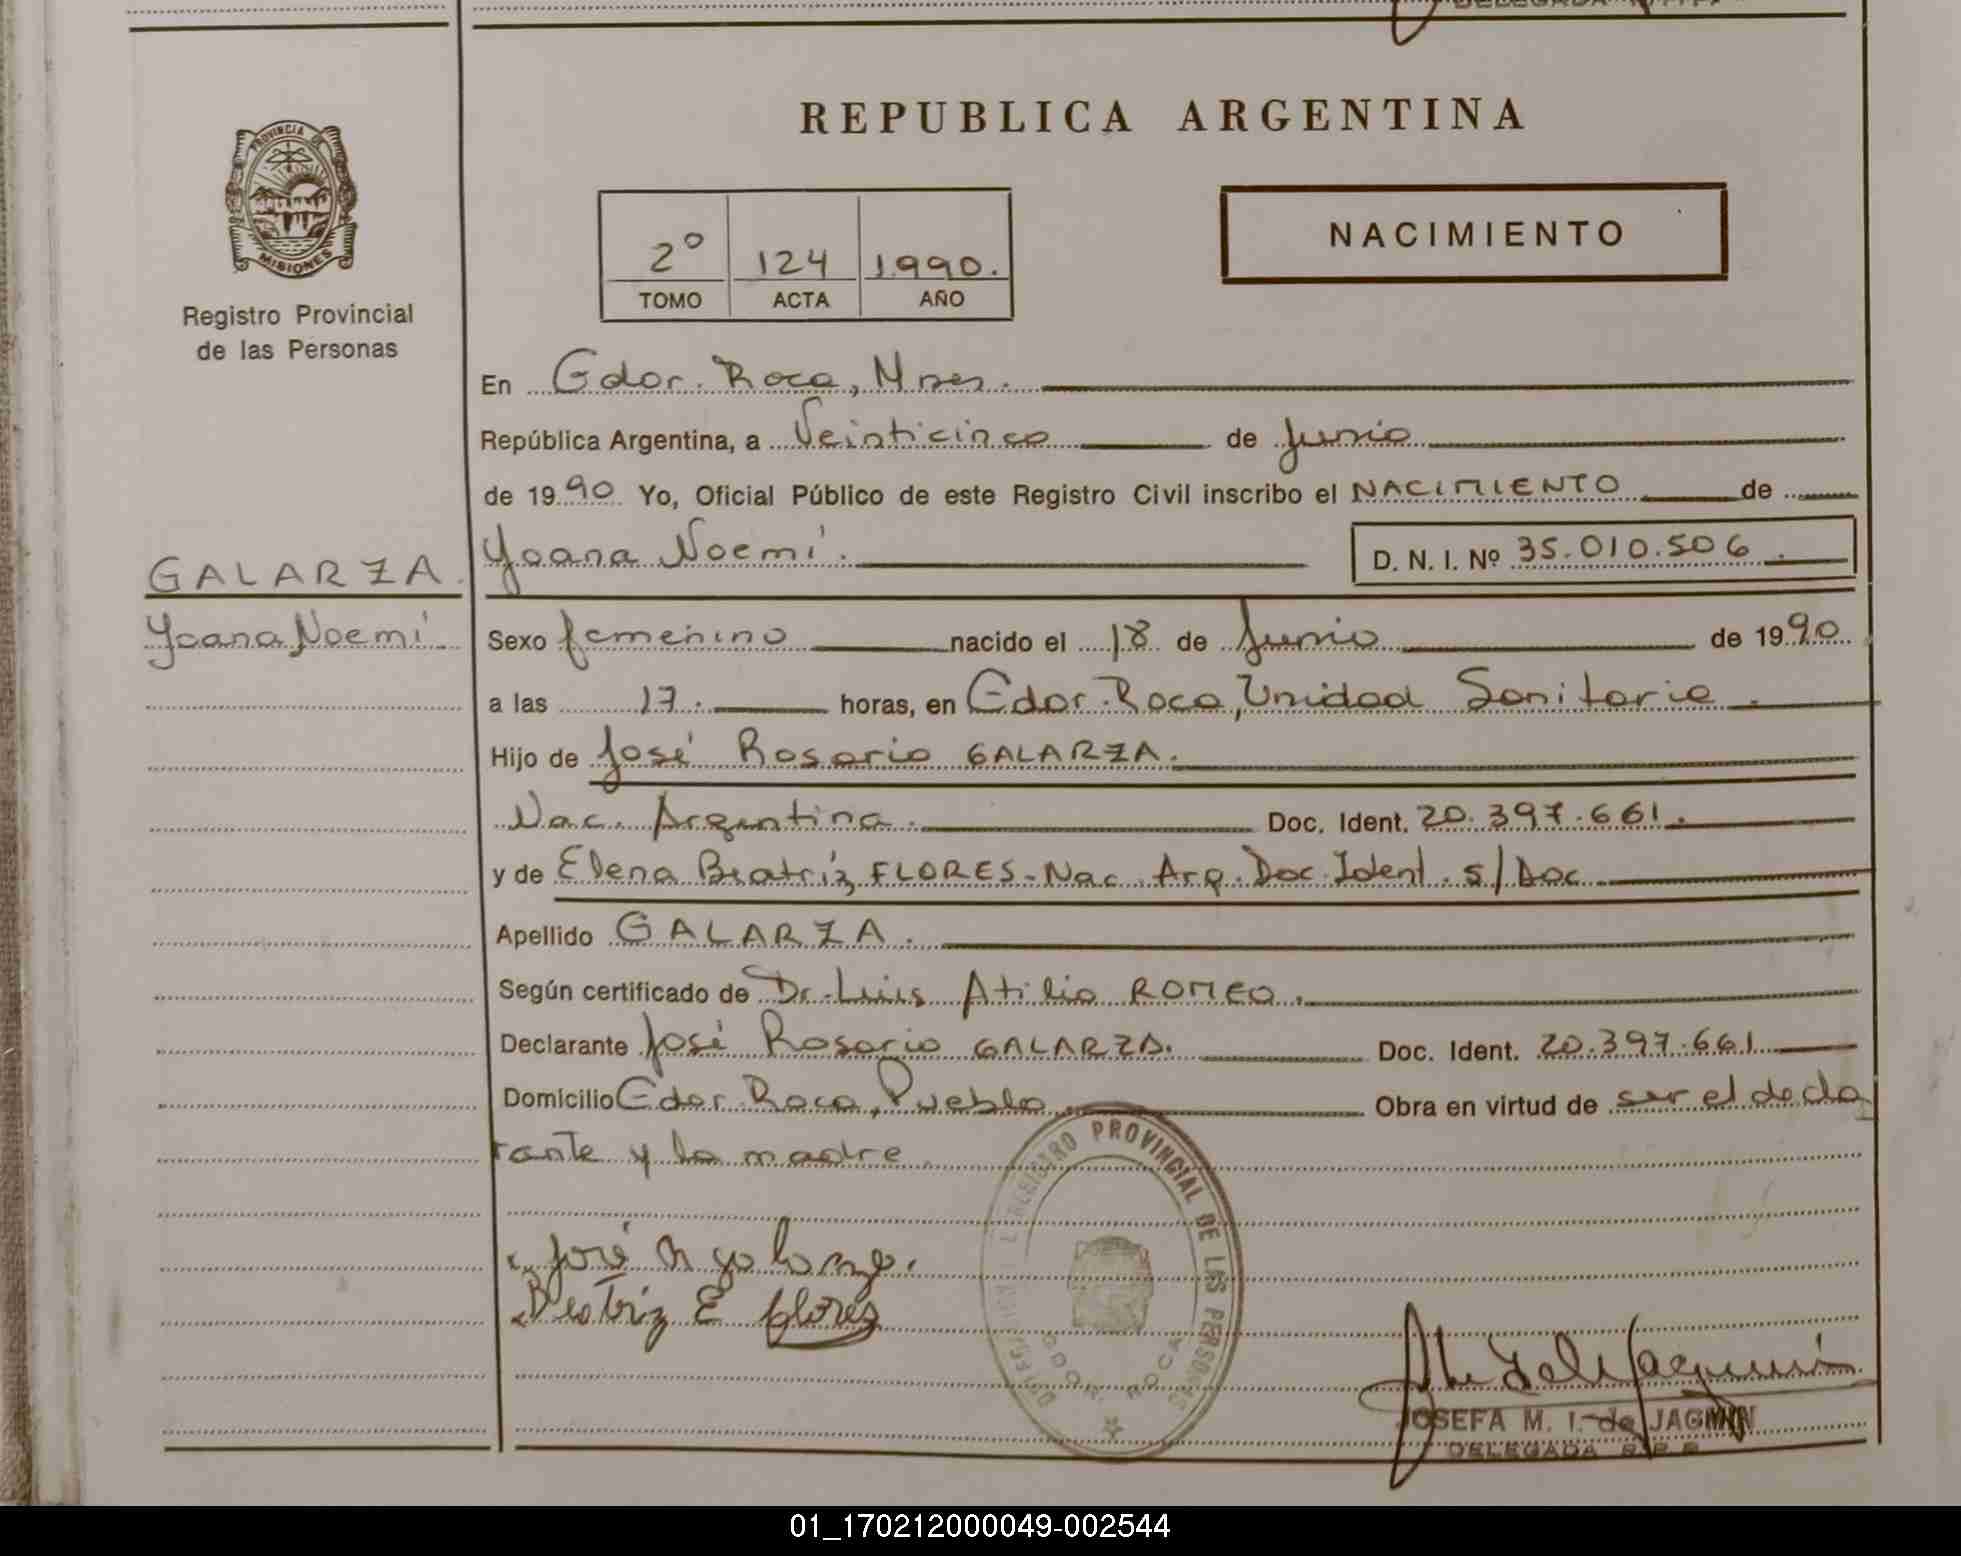 DELEGADA
PROVINCIA DE
MISIONES
Registro Provincial
de las Personas
GALARZA.
Yoana Noemí.
REPUBLICA ARGENTINA
2º 124 1990.
TOMO ACTA AÑO
NACIMIENTO
En Gdor. Roca, Mnes.
República Argentina, a Veinticinco de Junio
de 1990 Yo, Oficial Público de este Registro Civil inscribo el NACIMIENTO de
Yoana Noemí. D. N. I. Nº 35.010.506.
Sexo femenino nacido el 18 de Junio de 1990
a las 17. horas, en Gdor. Roca, Unidad Sanitaria.
Hijo de José Rosario GALARZA.
Nac. Argentina. Doc. Ident. 20.397.661.
y de Elena Beatríz FLORES-Nac. Arg. Doc. Ident. s/Doc
Apellido GALARZA.
Según certificado de Dr. Luis Atilio ROMEO.
Declarante José Rosario GALARZA. Doc. Ident. 20.397.661
Domicilio Gdor. Roca, Pueblo. Obra en virtud de ser el decla
rante y la madre.
REGISTRO PROVINCIAL DE LAS PERSONAS
GDOR. ROCA
José R galarza.
Beatriz E flores
JOSEFA M. I. de JAGMIN
DELEGADA R.P.P.
01_170212000049-002544